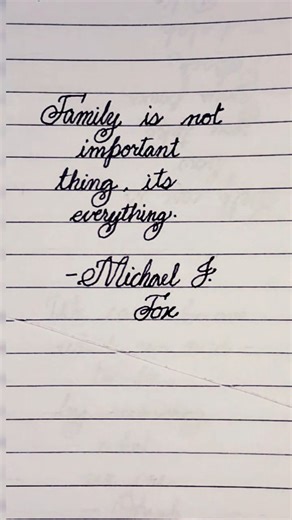 Family is not
important
thing, its
everything.
- Michael J.
Fox